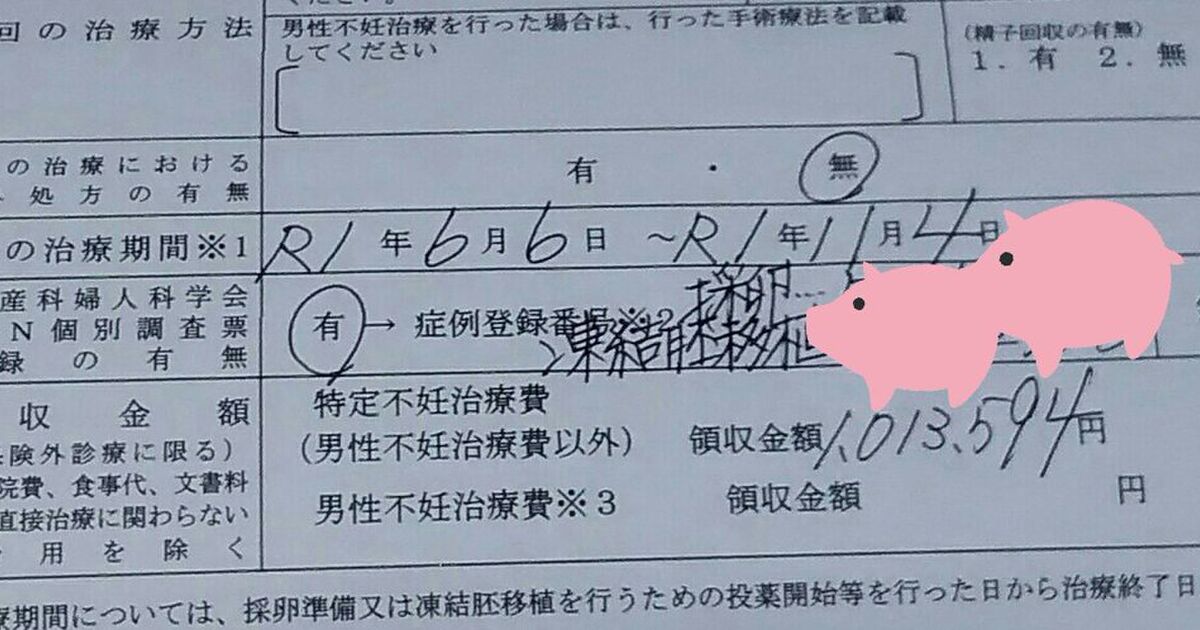 ください。
回の治療方法
男性不妊治療を行った場合は、行った手術療法を記載
してください
(精子回収の有無)
1. 有 2. 無
の治療における
処方の有無
有 ・ 無
の治療期間※1
R1年6月6日 ~R1年11月4日
産科婦人科学会
N個別調査票
録の有無
有→ 症例登録番号※2
採卵…
凍結胚移植
収金額
険外診療に限る)
院費、食事代、文書料
直接治療に関わらない
用を除く
特定不妊治療費
(男性不妊治療費以外) 領収金額 1,013,594円
男性不妊治療費※3 領収金額 円
療期間については、採卵準備又は凍結胚移植を行うための投薬開始等を行った日から治療終了日